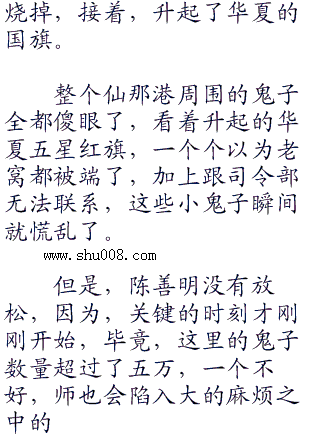 烧掉，接着，升起了华夏的
国旗。
整个仙那港周围的鬼子
全都傻眼了，看着升起的华
夏五星红旗，一个个以为老
窝都被端了，加上跟司令部
无法联系，这些小鬼子瞬间
就慌乱了。
www.shu008.com
但是，陈善明没有放
松，因为，关键的时刻才刚
刚开始，毕竟，这里的鬼子
数量超过了五万，一个不
好，师也会陷入大的麻烦之
中的